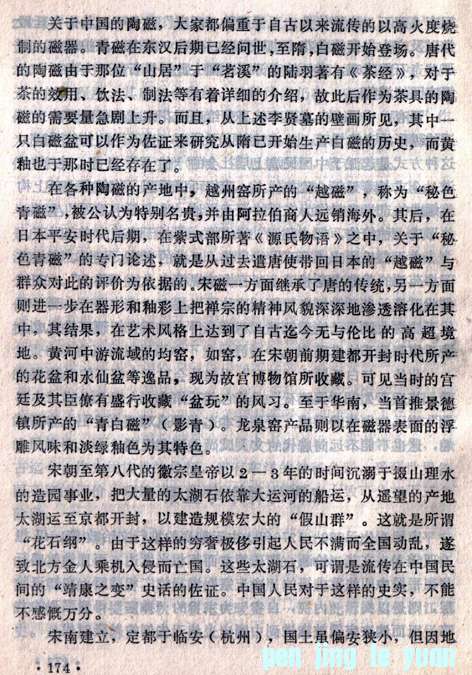 关于中国的陶磁，大家都偏重于自古以来流传的以高火度烧
制的磁器。青磁在东汉后期已经问世，至隋，白磁开始登场。唐代
的陶磁由于那位“山居”于“茗溪”的陆羽著有《茶经》，对于
茶的效用、饮法、制法等有着详细的介绍，故此后作为茶具的陶
磁的需要量急剧上升。而且，从上述李贤墓的壁画所见，其中一
只白磁盆可以作为佐证来研究从隋已开始生产白磁的历史，而黄
釉也于那时已经存在了。
在各种陶磁的产地中，越州窑所产的“越磁”，称为“秘色
青磁”，被公认为特别名贵，并由阿拉伯商人远销海外。其后，在
日本平安时代后期，在紫式部所著《源氏物语》之中，关于“秘
色青磁”的专门论述，就是从过去遣唐使带回日本的“越磁”与
群众对此的评价为依据的。宋磁一方面继承了唐的传统，另一方面
则进一步在器形和釉彩上把禅宗的精神风貌深深地渗透溶化在其
中，其结果，在艺术风格上达到了自古迄今无与伦比的高超境
地。黄河中游流域的均窑，如窑，在宋朝前期建都开封时代所产
的花盆和水仙盆等逸品，现为故宫博物馆所收藏。可见当时的宫
廷及其臣僚有盛行收藏“盆玩”的风习。至于华南，当首推景德
镇所产的“青白磁”（影青）。龙泉窑产品则以在磁器表面的浮
雕风味和淡绿釉色为其特色。
宋朝至第八代的徽宗皇帝以2—3年的时间沉溺于掇山理水
的造园事业，把大量的太湖石依靠大运河的船运，从遥望的产地
太湖运至京都开封，以建造规模宏大的“假山群”。这就是所谓
“花石纲”。由于这样的穷奢极侈引起人民不满而全国动乱，遂
致北方金人乘机入侵而亡国。这些太湖石，可谓是流传在中国民
间的“靖康之变”史话的佐证。中国人民对于这样的史实，不能
不感慨万分。
宋南建立，定都于临安（杭州），国土虽偏安狭小，但因地
·174·
pen jing le yuan